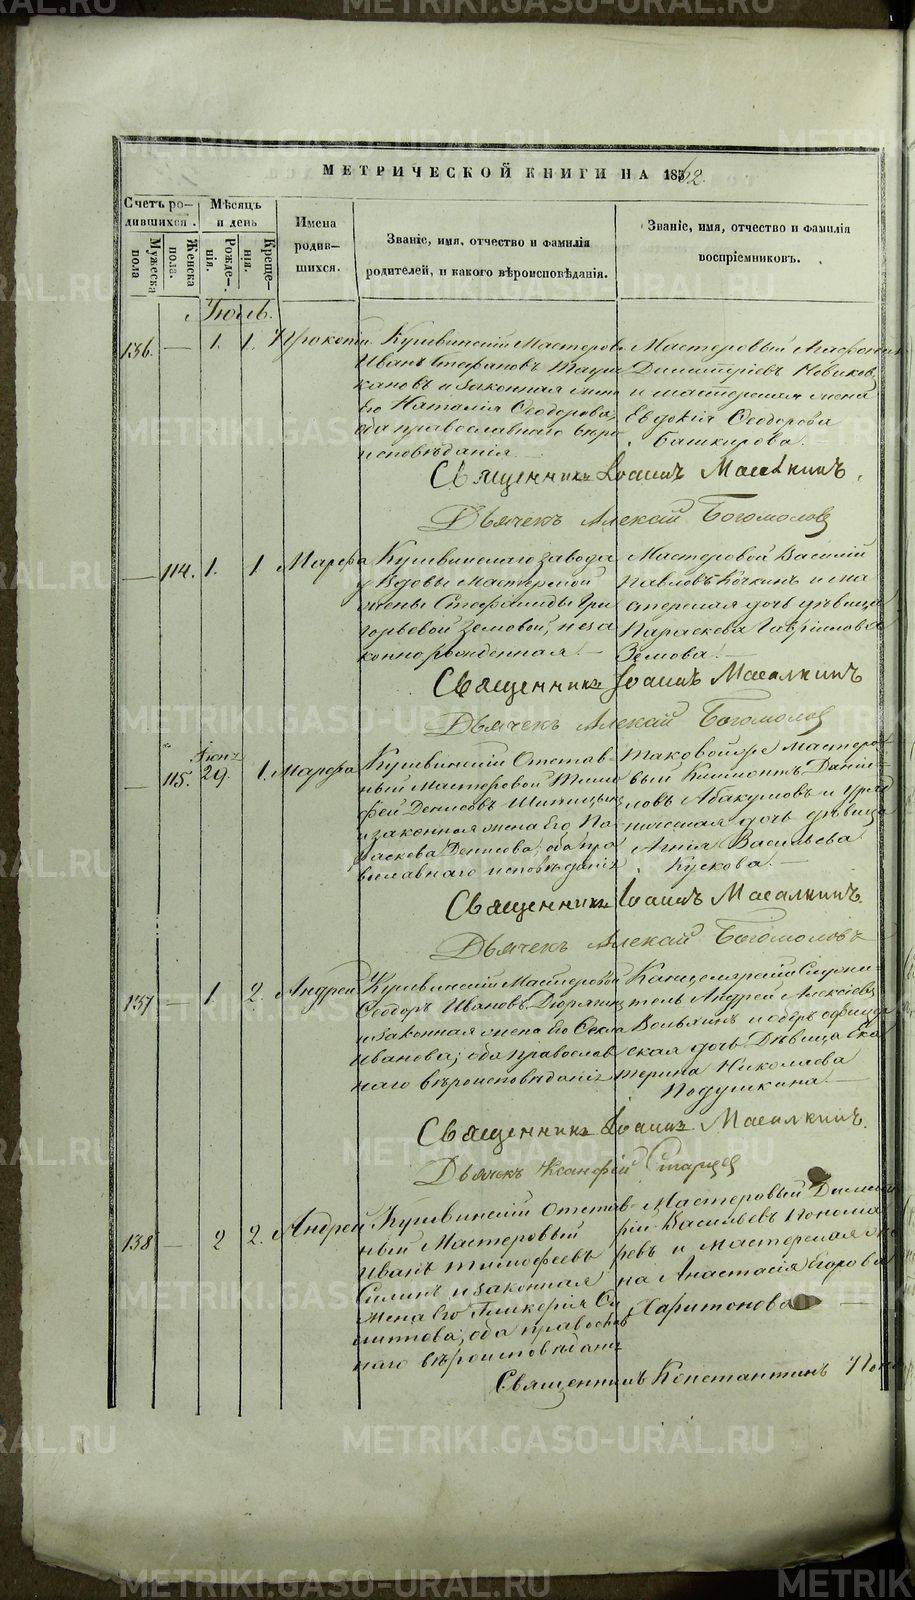 МЕТРИЧЕСКОЙ КНИГИ НА 1862.
Счетъ ро-
дившихся.
Мужеска
пола
Женска
пола.
Мѣсяцъ
и день
Рожде-
нія.
Креще-
нія.
Имена
родив-
шихся.
Званіе, имя, отчество и фамилія
родителей, и какого вѣроисповѣданія.
Званіе, имя, отчество и фамилія
воспріемниковъ.
Іюль.
136. — 1. 1. Прокопій
Кушвинскій Мастеров
Иванъ Стефановъ
и законная жена
Его Наталія Ѳеодорова,
оба православнаго вѣро
исповѣданія
Мастеровый
Димитріевъ Новиков
и мастерская жена
Евдокія Ѳеодорова
Башкирова.
Священникъ Іоаннъ Масалкинъ.
Дьячекъ Алексій Богомолов
— 114. 1. 1 Марфа
Кушвинскаго завода
у Вдовы Мастерской
жены Стефаниды Гри
горьевой Земовой, неза
коннорожденная. —
Мастеровой Василій
Павловъ и ма
стерская дочь дѣвица
Параскева Гавріилова
Земова. —
Священникъ Іоаннъ Масалкинъ
Дьячекъ Алексій Богомолов
— 115. Іюня 29. 1. Марфа
Кушвинскій Отстав
ный Мастеровой Тимо
фей Денисовъ
и законная жена Его Па
раскева Денисова, оба пра
вославнаго исповѣданія
Таковой же мастеро
вый Климонтъ Даніи
ловъ Абакумовъ и уряд
ничешая дочь дѣвица
Анна Васильева
Кускова. —
Священникъ Іоаннъ Масалкинъ.
Дьячекъ Алексій Богомоловъ
137 — 1. 2. Андрей
Кушвинскій Мастеровой
Ѳеодоръ Ивановъ
и законная жена Его Ѳекла
Иванова; оба православ
наго вѣроисповѣданія
Канцелярскій Служи
тель Андрей Алексѣевъ
и оберъ офицер
ская дочь Дѣвица Ека
терина Николаева
Подушкина. —
Священникъ Іоаннъ Масалкинъ.
Дьячекъ Ксанфій Старцев
138 — 2 2. Андрей
Кушвинскій отстав
ный Мастеровый
Иванъ Тимофеевъ
Силинъ и законная
жена Его Гликерія
оба православ
наго вѣроисповѣдан
Мастеровый Димит
рій Васильевъ Понома
ревъ и мастерская же
на Анастасія Егорова
Харитонова —
Священникъ Константинъ